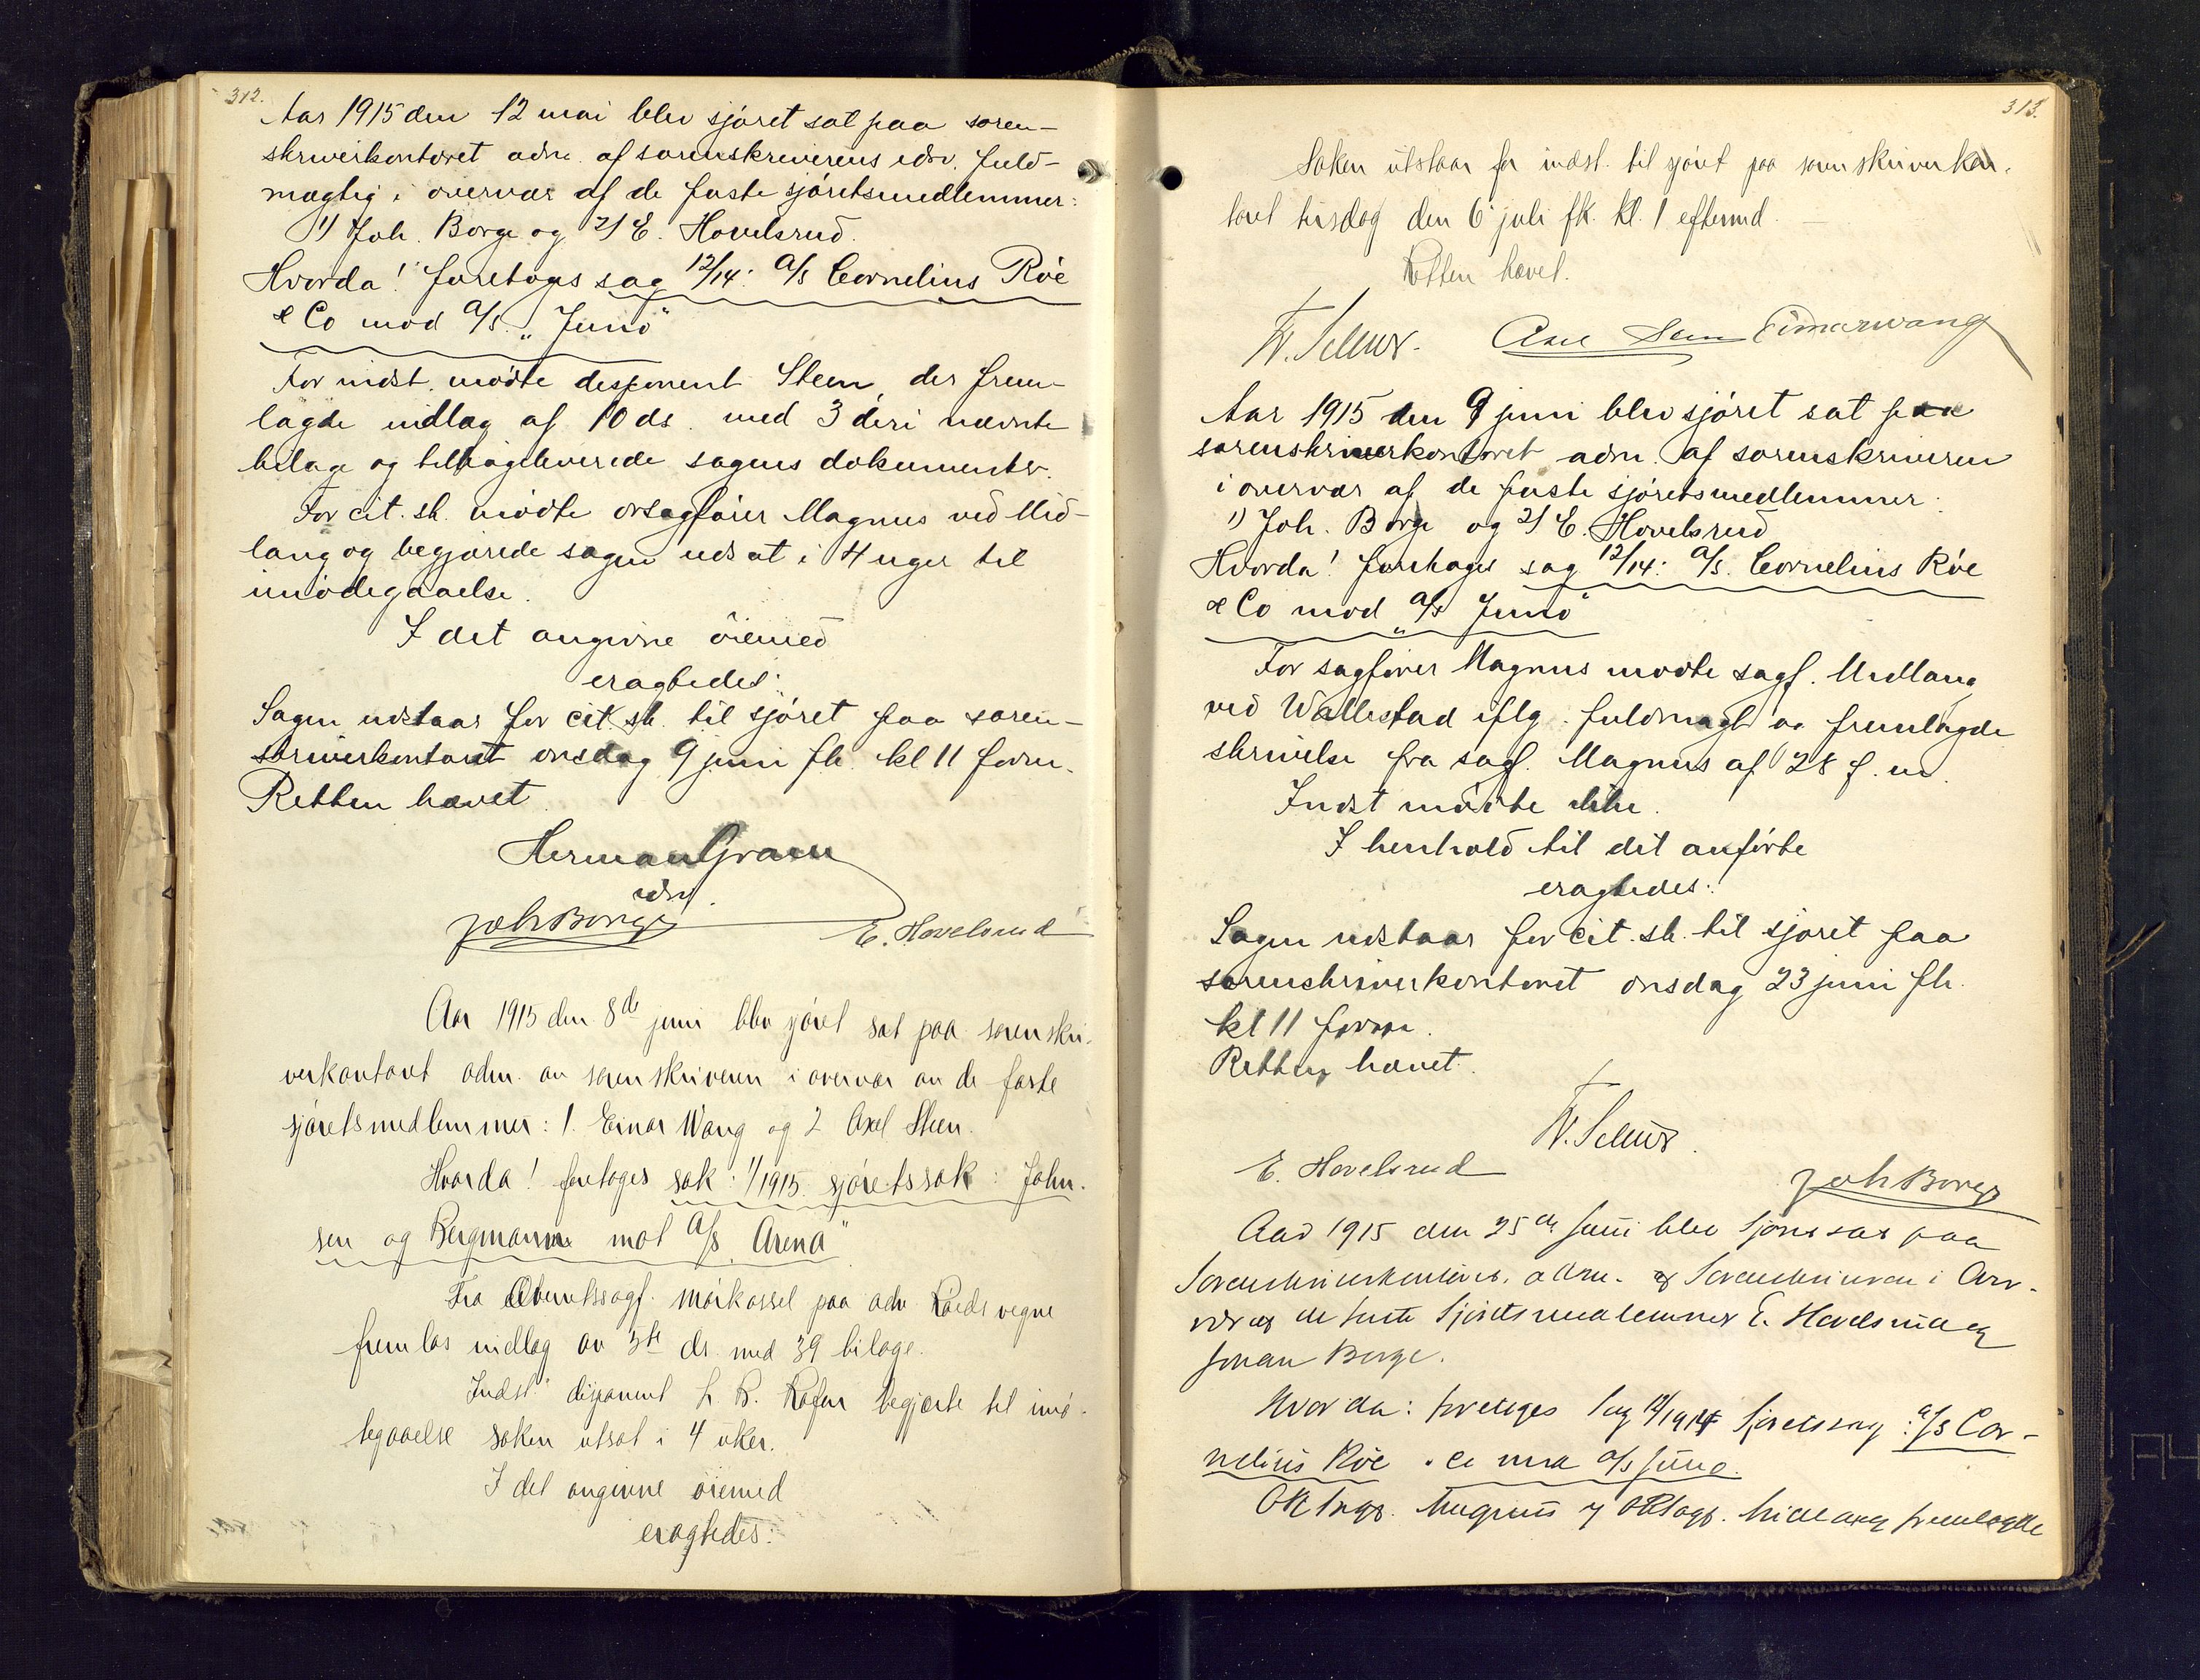 312.
Aar 1915 den 12 mai blev sjøret sat paa soren-
skriverkontoret adm. af sorenskriverens edsv. fuld-
mægtig i overvær af de faste sjøretsmedlemmer:
1) Joh. Borge og 2) E. Hovelsrud.
Hvorda! foretoges sag 12/14: A/S Cornelius Röe
& Co mod A/S. „Juno"
For indst. mødte disponent Steen, der frem-
lagde indlæg af 10 ds. med 3 deri nævnte
bilage og tilbageleverede sagens dokumenter.
For cit. st. mødte orsagfører Magnus ved Mid-
lang og begjærede sagen udsat i 4 uger til
imødegaaelse.
I det angivne öiemed
eragtedes:
Sagen udstaar for cit. st. til sjøret paa soren-
skriverkontoret onsdag 9 juni fk. kl 11 form.
Retten hævet.
Herman Gram
edsv.
Joh Borge
E. Hovelsrud
Aar 1915 den 8de juni blev sjøret sat paa sorenskri-
verkontoret adm. av sorenskriveren i overvær av de faste
sjøretsmedlemmer: 1. Einar Wang og 2 Axel Steen.
Hvorda! foretoges sak 1/1915. sjøretssak: John-
sen og Bergmann mot A/S „Arena"
Fra Overretssagf. Mörkassel paa adv. vegne
fremlas indlæg av 3dt ds. med 39 bilage.
Indst. disponent L. B. begjærte til imø-
tegaaelse saken utsat i 4 uker.
I det angivne öiemed
eragtedes:
313.
Saken utstaar for indst. til sjøret paa sorenskriverkon-
toret tirsdag den 6 juli fk. kl. 1 eftermd.
Retten hævet.
Axel Steen Einar Wang
Aar 1915 den 9 juni blev sjøret sat paa
sorenskriverkontoret adm. af sorenskriveren
i overvær af de faste sjøretsmedlemmer:
1) Joh. Borge og 2) E. Hovelsrud
Hvorda! foretoges sag 12/14: A/S. Cornelius Röe
& Co mod „A/S Juno"
For sagfører Magnus mødte sagf. Midlang
ved Wallestad iflg. fuldmagt og fremlagde
skrivelse fra sagf. Magnus af 28 f. m.
Indst mødte ikke.
I henhold til det anførte
eragtedes:
Sagen udstaar for cit. st. til sjøret paa
sorenskriverkontoret onsdag 23 juni fk.
kl 11 form.
Retten hævet.
E. Hovelsrud
Joh Borge
Aar 1915 den 25de Juni blev Sjøret sat paa
Sorenskriverkontoret, adm. af Sorenskriveren i Over-
vær af de faste Sjøretsmedlemmer E. Hovelsrud og
Johan Borge.
Hvorda: foretoges Sag 12/1914 Sjøretssag: A/S Cor-
nelius Röe & Co mod A/S Juno.
ORsagf. Magnus v/ ORsagf. Midlang fremlagde